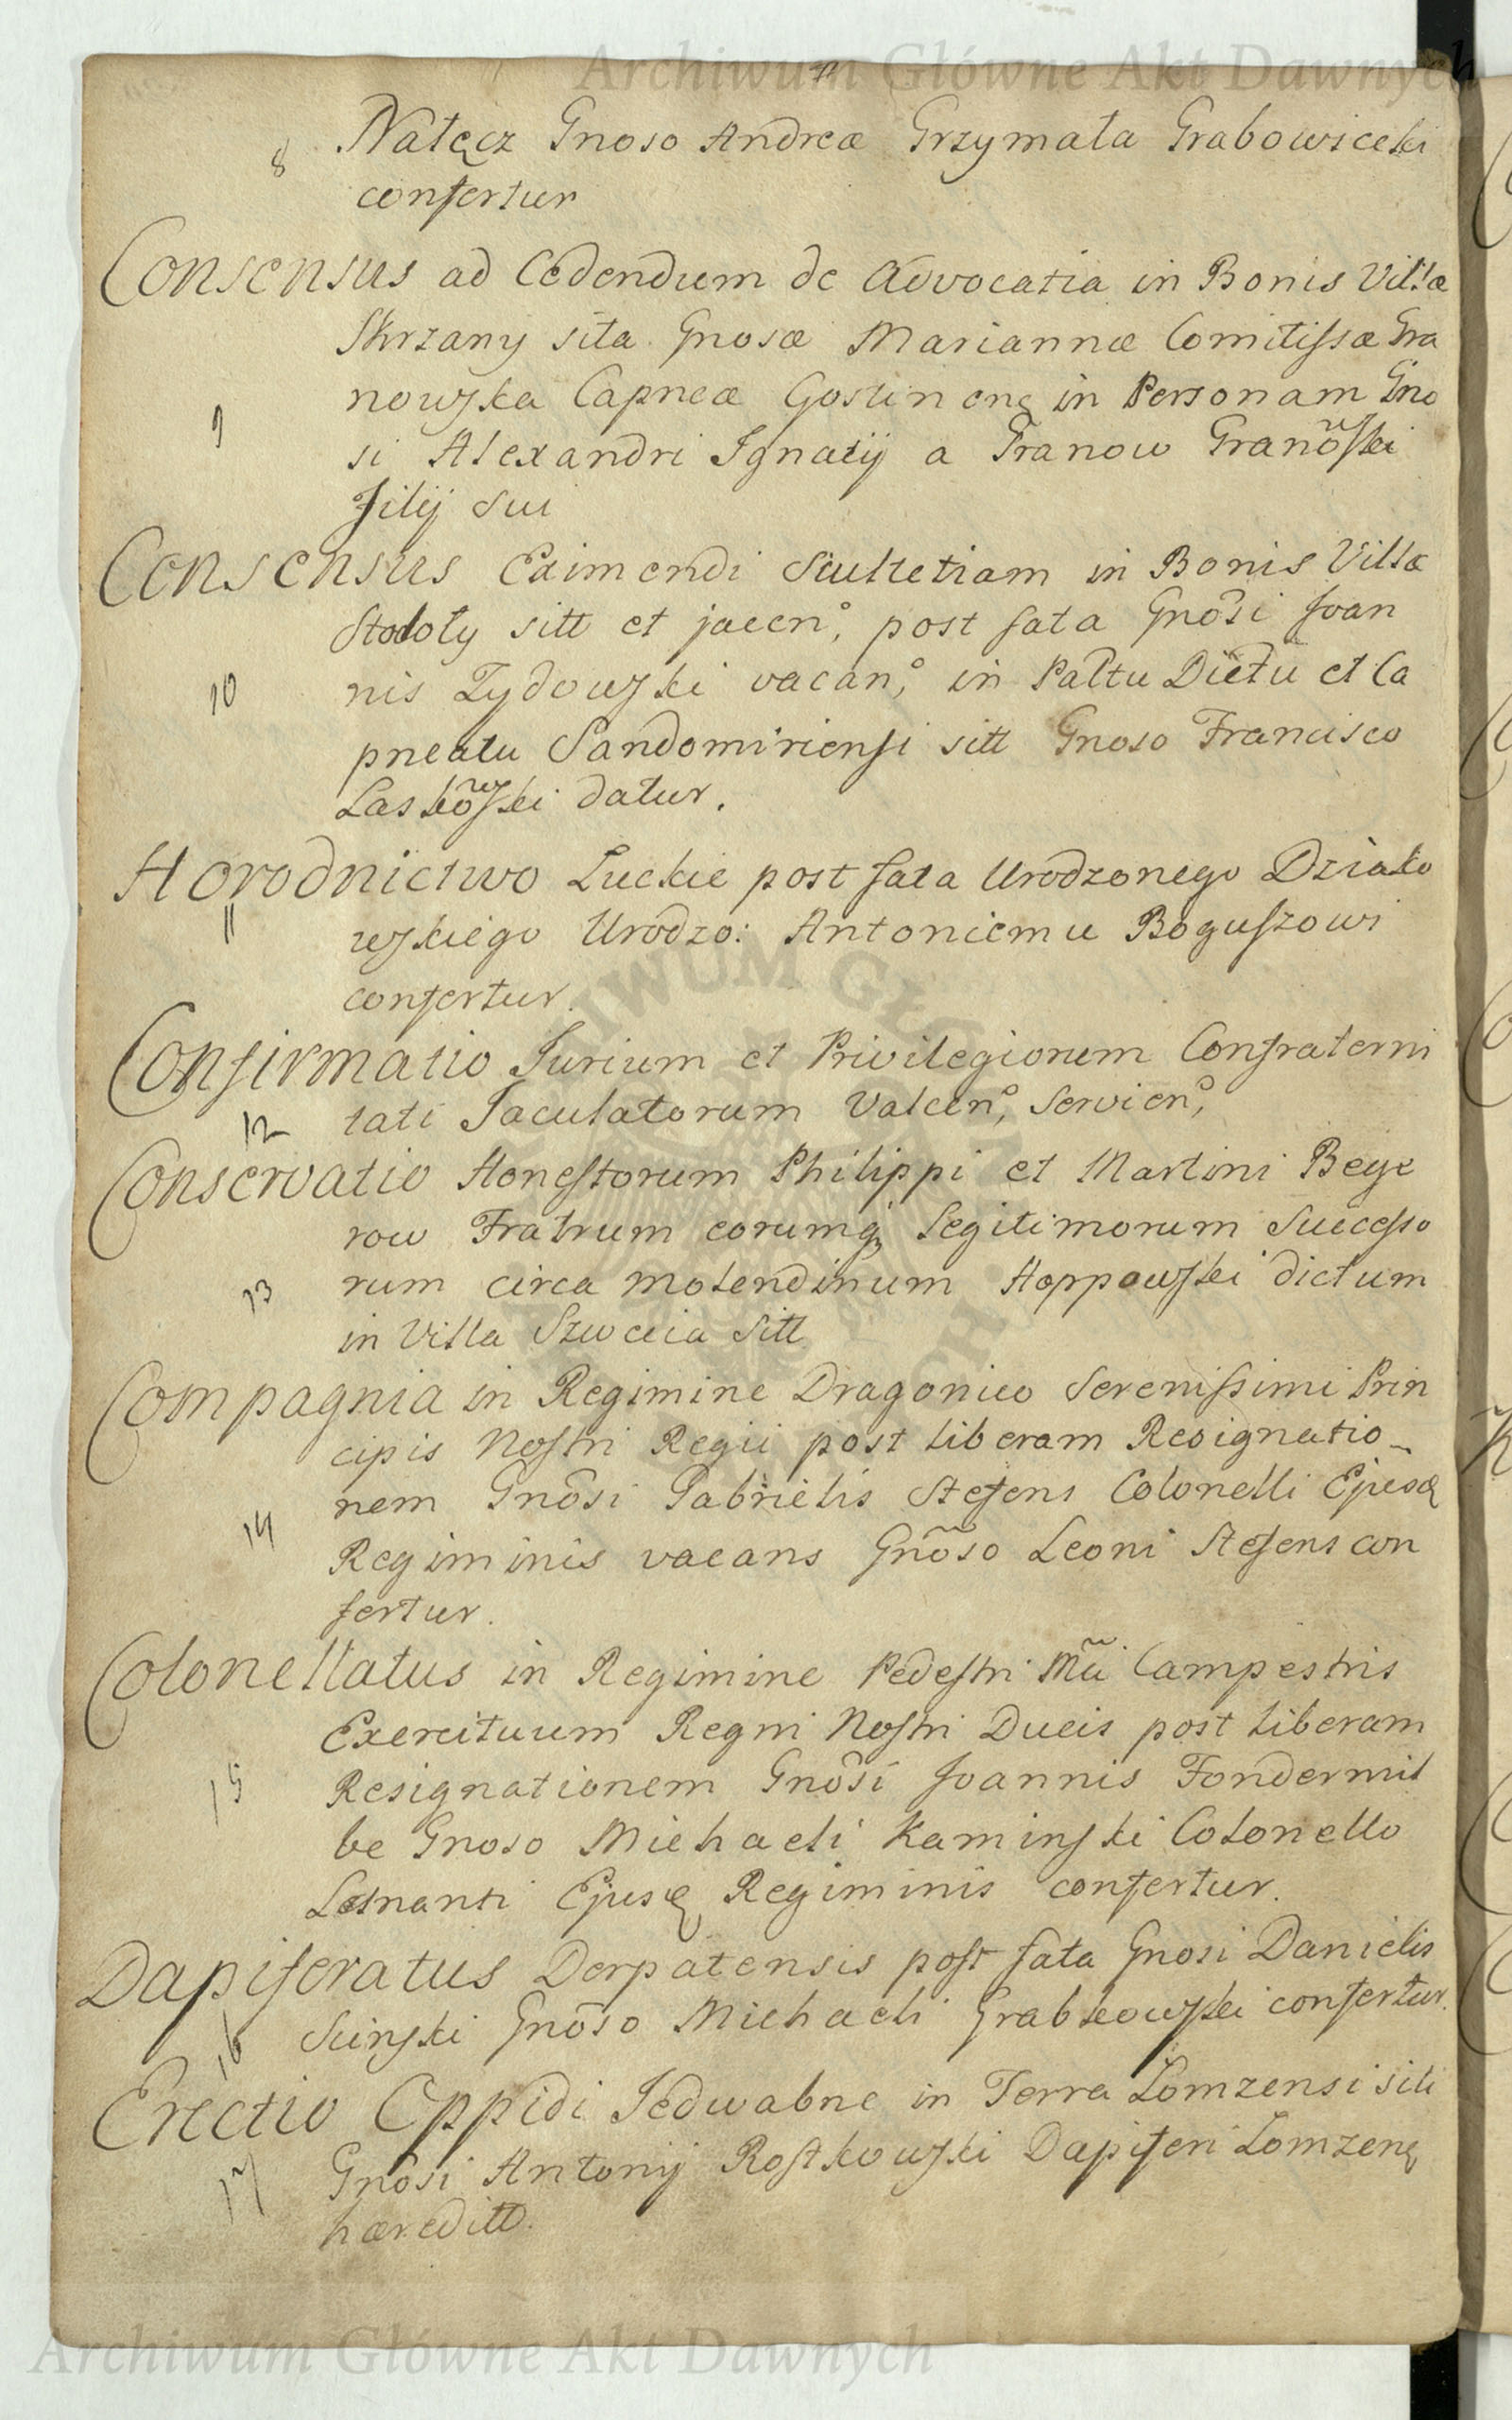 Archiwum Główne Akt Dawnych
8 Nałęcz Gnoso Andreæ Grzymała Grabowiceki
confertur
Consensus ad Cedendum de Advocatia in Bonis Villæ
Skrzany sita Gnosæ Mariannæ Comitissæ Gra
nowska Capneæ Gostinenę in Personam Gno
9
si Alexandri Ignatij a Granow Granowski
Filij Sui
Consensus Eximendi Scultetiam in Bonis Villæ
Stodoły sitt et jacen, post fata Gnosi Joan
10 nis Zydowski vacan, in Palttu Dictu et Ca
pneatu Sandomiriensi sitt Gnoso Francisco
Laskowski datur.
Horodnictwo Luckie post fata Urodzonego Dziako
11 wskiego Urodzo: Antoniemu Boguszowi
confertur.
Confirmatio Jurium et Privilegiorum Confraterni
12 tati Jaculatorum Valcen, Servien,
Conservatio Honestorum Philippi et Martini Beye
row Fratrum eorumq Legitimorum Successo
13 rum circa molendinum Hoppowski dictum
in Villa Szwecia Sitt
Compagnia in Regimine Dragonico Serenissimi Prin
cipis Nostri Regii post liberam Resignatio_
nem Gnosi Gabrielis Stefens Colonelli Ejusq
14 Regiminis vacans Gnoso Leoni Stefens con
fertur.
Colonellatus in Regimine Pedestri Mu Campestris
Exercituum Regni Nostri Ducis post liberam
15 Resignationem Gnosi Joannis Fondermil
be Gnoso Michaeli Kaminski Colonello
Lotnanti Ejusq Regiminis confertur.
Dapiferatus Derpatensis post fata Gnosi Danielis
16 Suinski Gnoso Michaeli Grabkowski confertur.
Erectio Oppidi Jedwabne in Terra Lomzensi siti
17 Gnosi Antonij Rostkowski Dapiferi Lomzenę
hæreditt.
Archiwum Główne Akt Dawnych